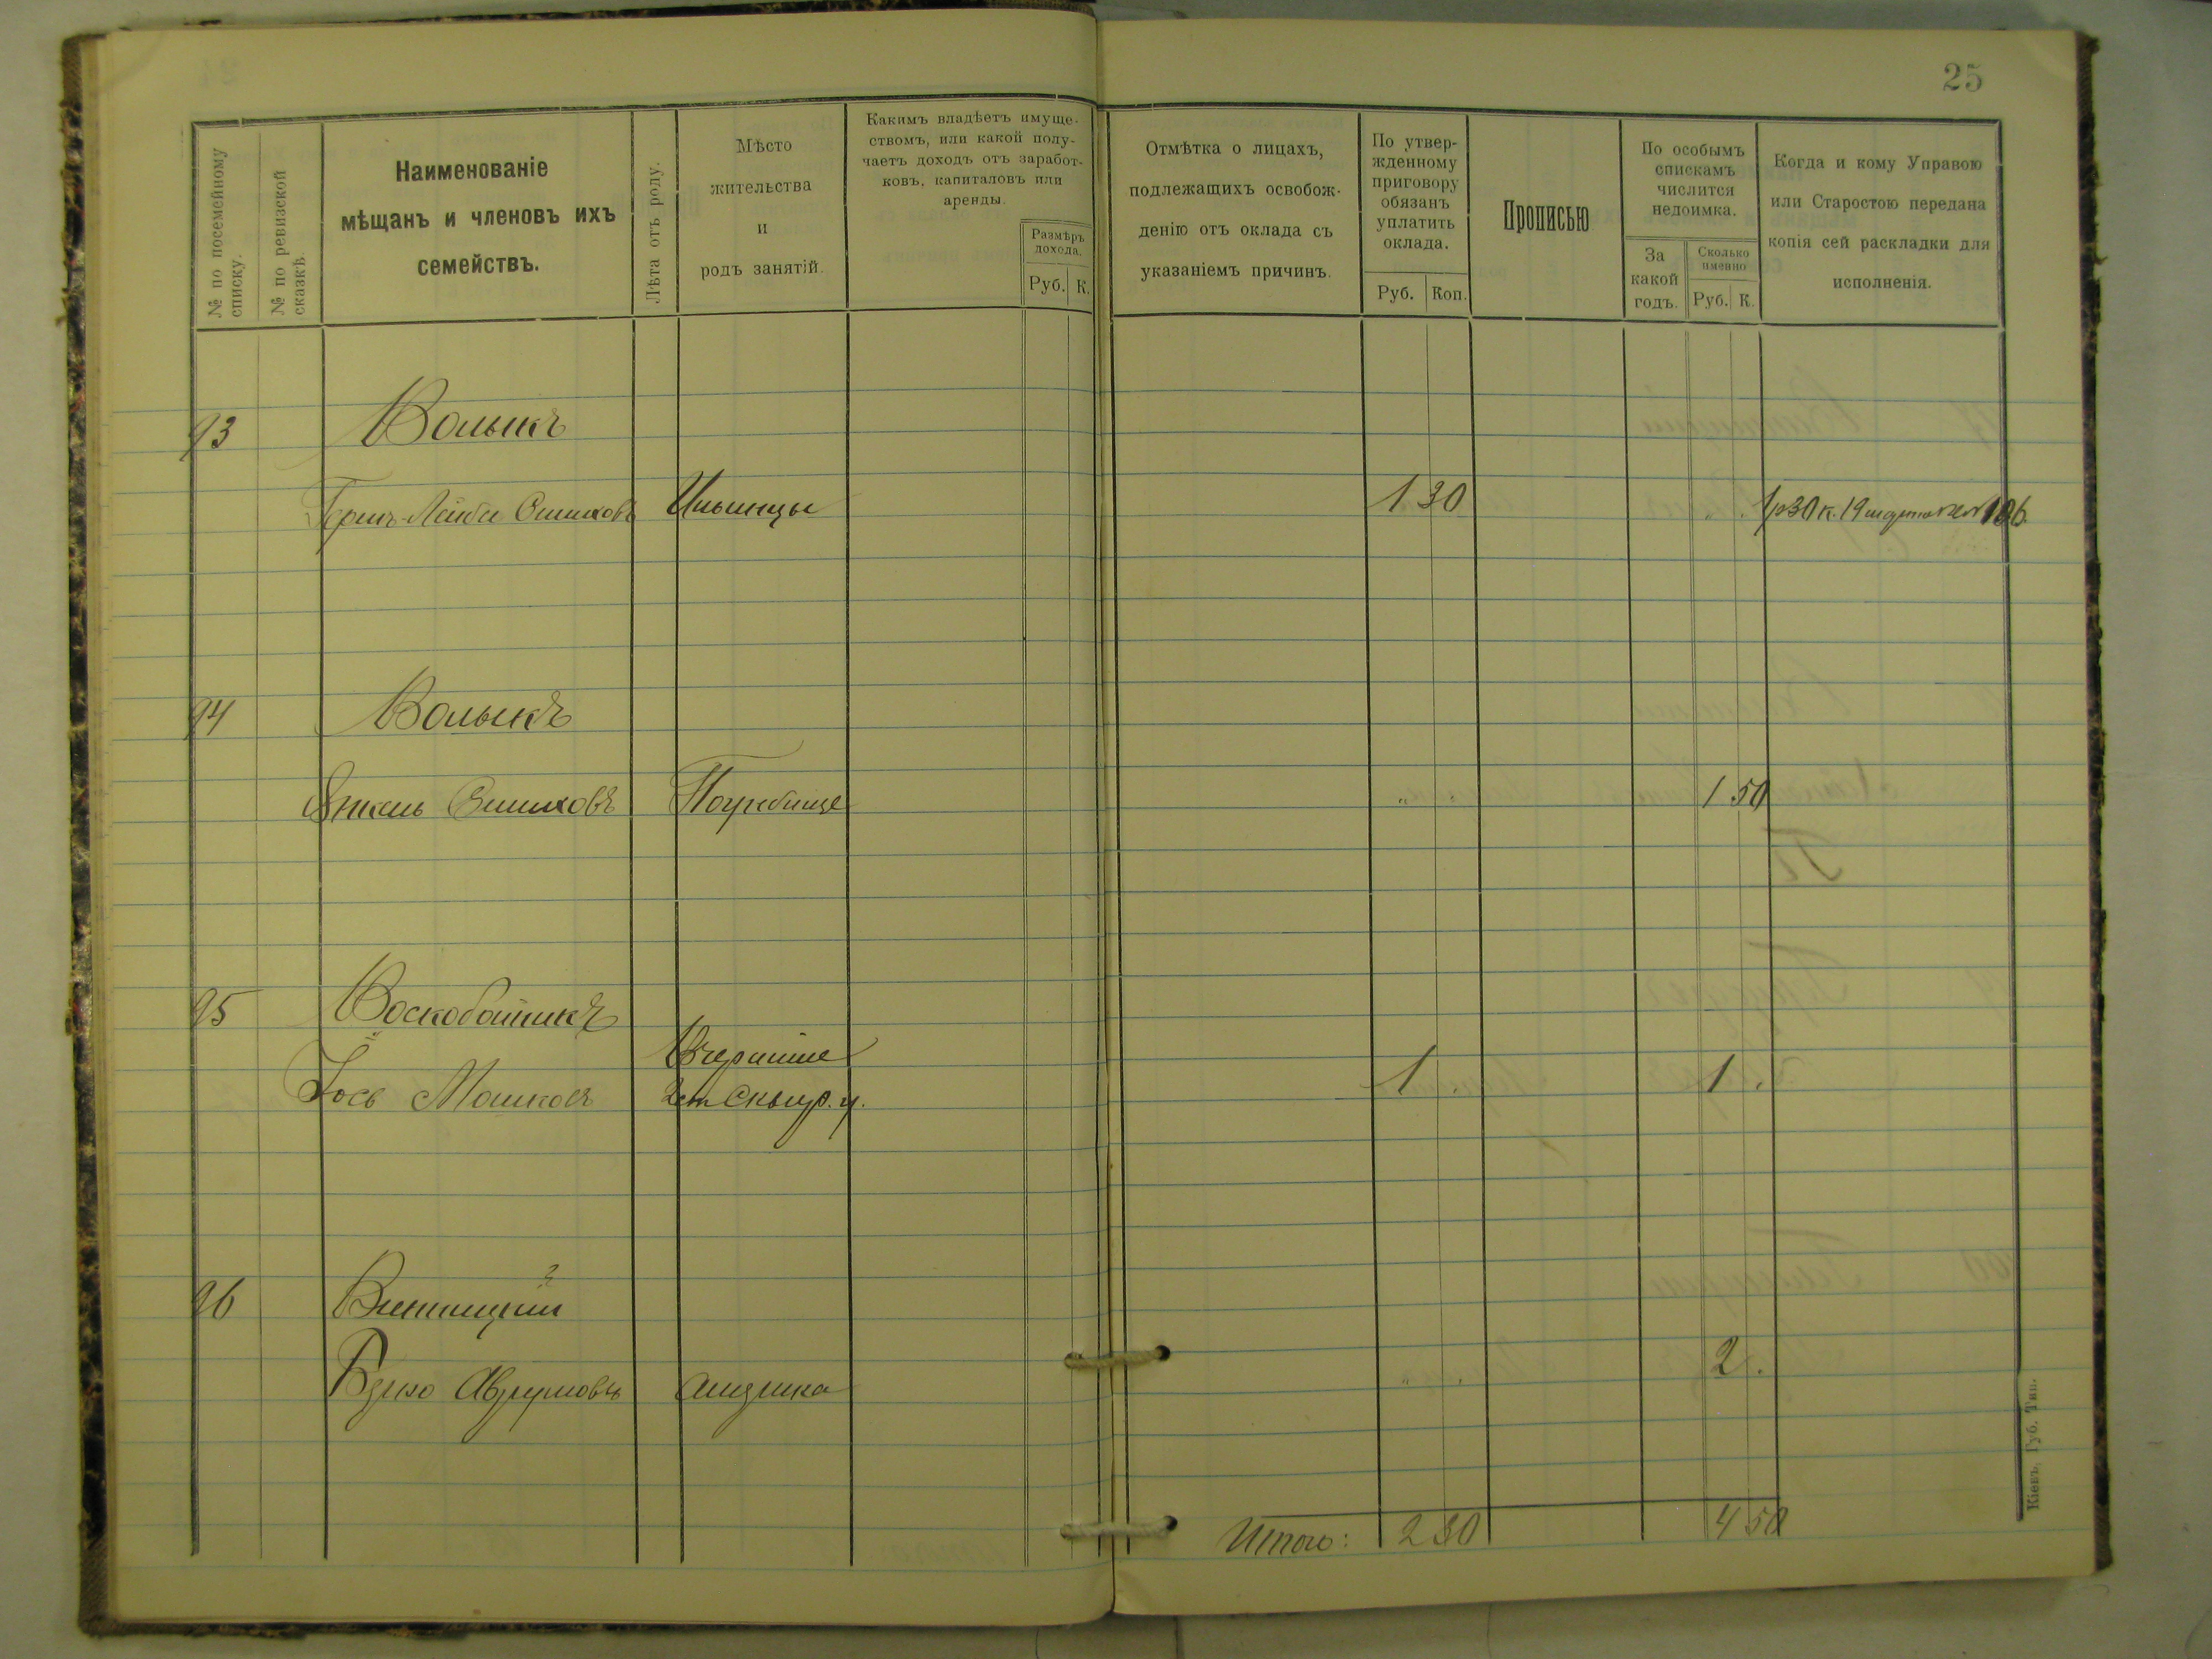 25
№ по посемейному списку.
№ по ревизской сказкѣ.
Наименованіе
мѣщанъ и членовъ ихъ
семействъ.
Лѣта отъ роду.
Мѣсто
жительства
и
родъ занятій.
Какимъ владѣетъ имуще-
ствомъ, или какой полу-
чаетъ доходъ отъ заработ-
ковъ, капиталовъ или
аренды.
Размѣръ
дохода.
Руб. К.
Отмѣтка о лицахъ,
подлежащихъ освобож-
денію отъ оклада съ
указаніемъ причинъ.
По утвер-
жденному
приговору
обязанъ
уплатить
оклада.
Руб. Коп.
Прописью
По особымъ
спискамъ
числится
недоимка.
За
какой
годъ.
Сколько
именно
Руб. К.
Когда и кому Управою
или Старостою передана
копія сей раскладки для
исполненія.
93 Волыкъ
Герш-Лейба Ошиховъ Ильинцы 1 30 1р 30 к. 19
94 Волыкъ
Янкель Ошиховъ Погребище " 1 50
95 Воскобойникъ
Іось Мошковъ Вчерайше
2 ст Сквир. у. 1 1 .
96 Винницкій
Аврумовъ 2 .
Итого: 2 30 4 50
Кіевъ, Губ. Тип.